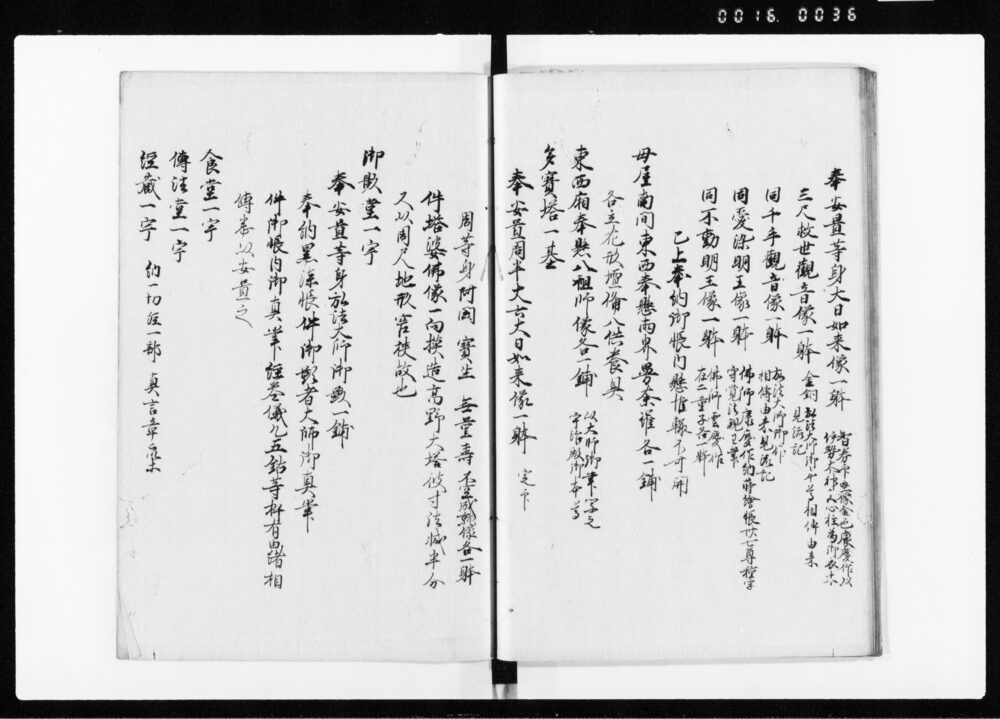 0016. 0036
奉安置等身大日如来像一躰
智拳印五像金色康慶作以
伊勢太神人心柱為御衣木
三尺救世観音像一躰 金銅 弘法大師御本尊相傳由来
見流記
同千手觀音像一躰 弘法大師御作
相傳由来見流記
同愛染明王像一躰 佛師康慶作納蒔繪帳卅七尊種字
守覚法親王筆
同不動明王像一躰 佛師雲慶作
在二童子各一躰
已上奉納御帳内懸推輙不可開
母屋南間東西奉懸両界曼荼羅各一鋪
各立花形壇備八供養具
東西廂奉懸八祖師像各一鋪 以大師御筆写之
宇治殿御本尊
多寳塔一基
奉安置周半丈六大日如来像一躰 定印
周等身阿閦 寳生 無量壽 不空成就像各一躰
件塔婆佛像一向摸造高野大塔但寸法減半分
又以周尺地形窄狭故也
御影堂一宇
奉安置等身弘法大師御影一鋪
奉納黒漆帳件御影者大師御真筆
件御帳内御真筆經巻儀軌五鈷等杵有由緒相
傳奉以安置之
食堂一宇
傳法堂一宇
經藏一宇 納一切經一部 真言章䟽